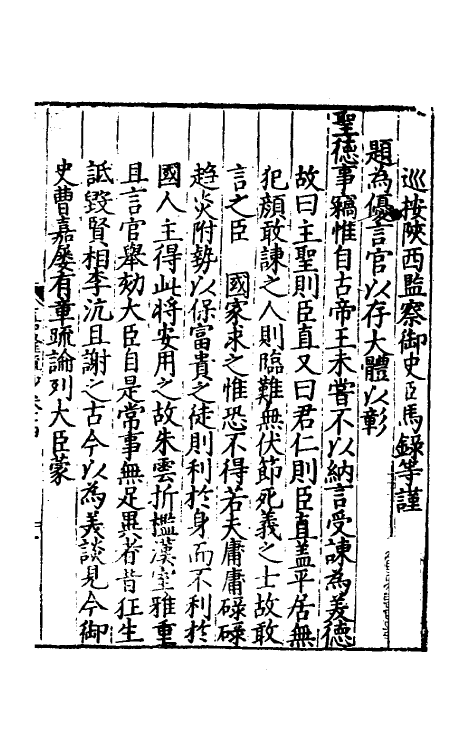 巡按陝西監察御史臣馬錄等謹
題為優言官以存大體以彰
聖德事竊惟自古帝王未嘗不以納言受諫為美德
故曰主聖則臣直又曰君仁則臣直盖平居無
犯顏敢諫之人則臨難無伏節死義之士故敢
言之臣　國家求之惟恐不得若夫庸庸碌碌
趨炎附勢以保富貴之徒則利於身而不利於
國人主得此將安用之故朱雲折檻漢室雅重
且言官舉劾大臣自是常事無足異者昔狂生
詆毀賢相李沆且謝之古今以為美談見今御
史曹嘉屡有章疏論列大臣蒙